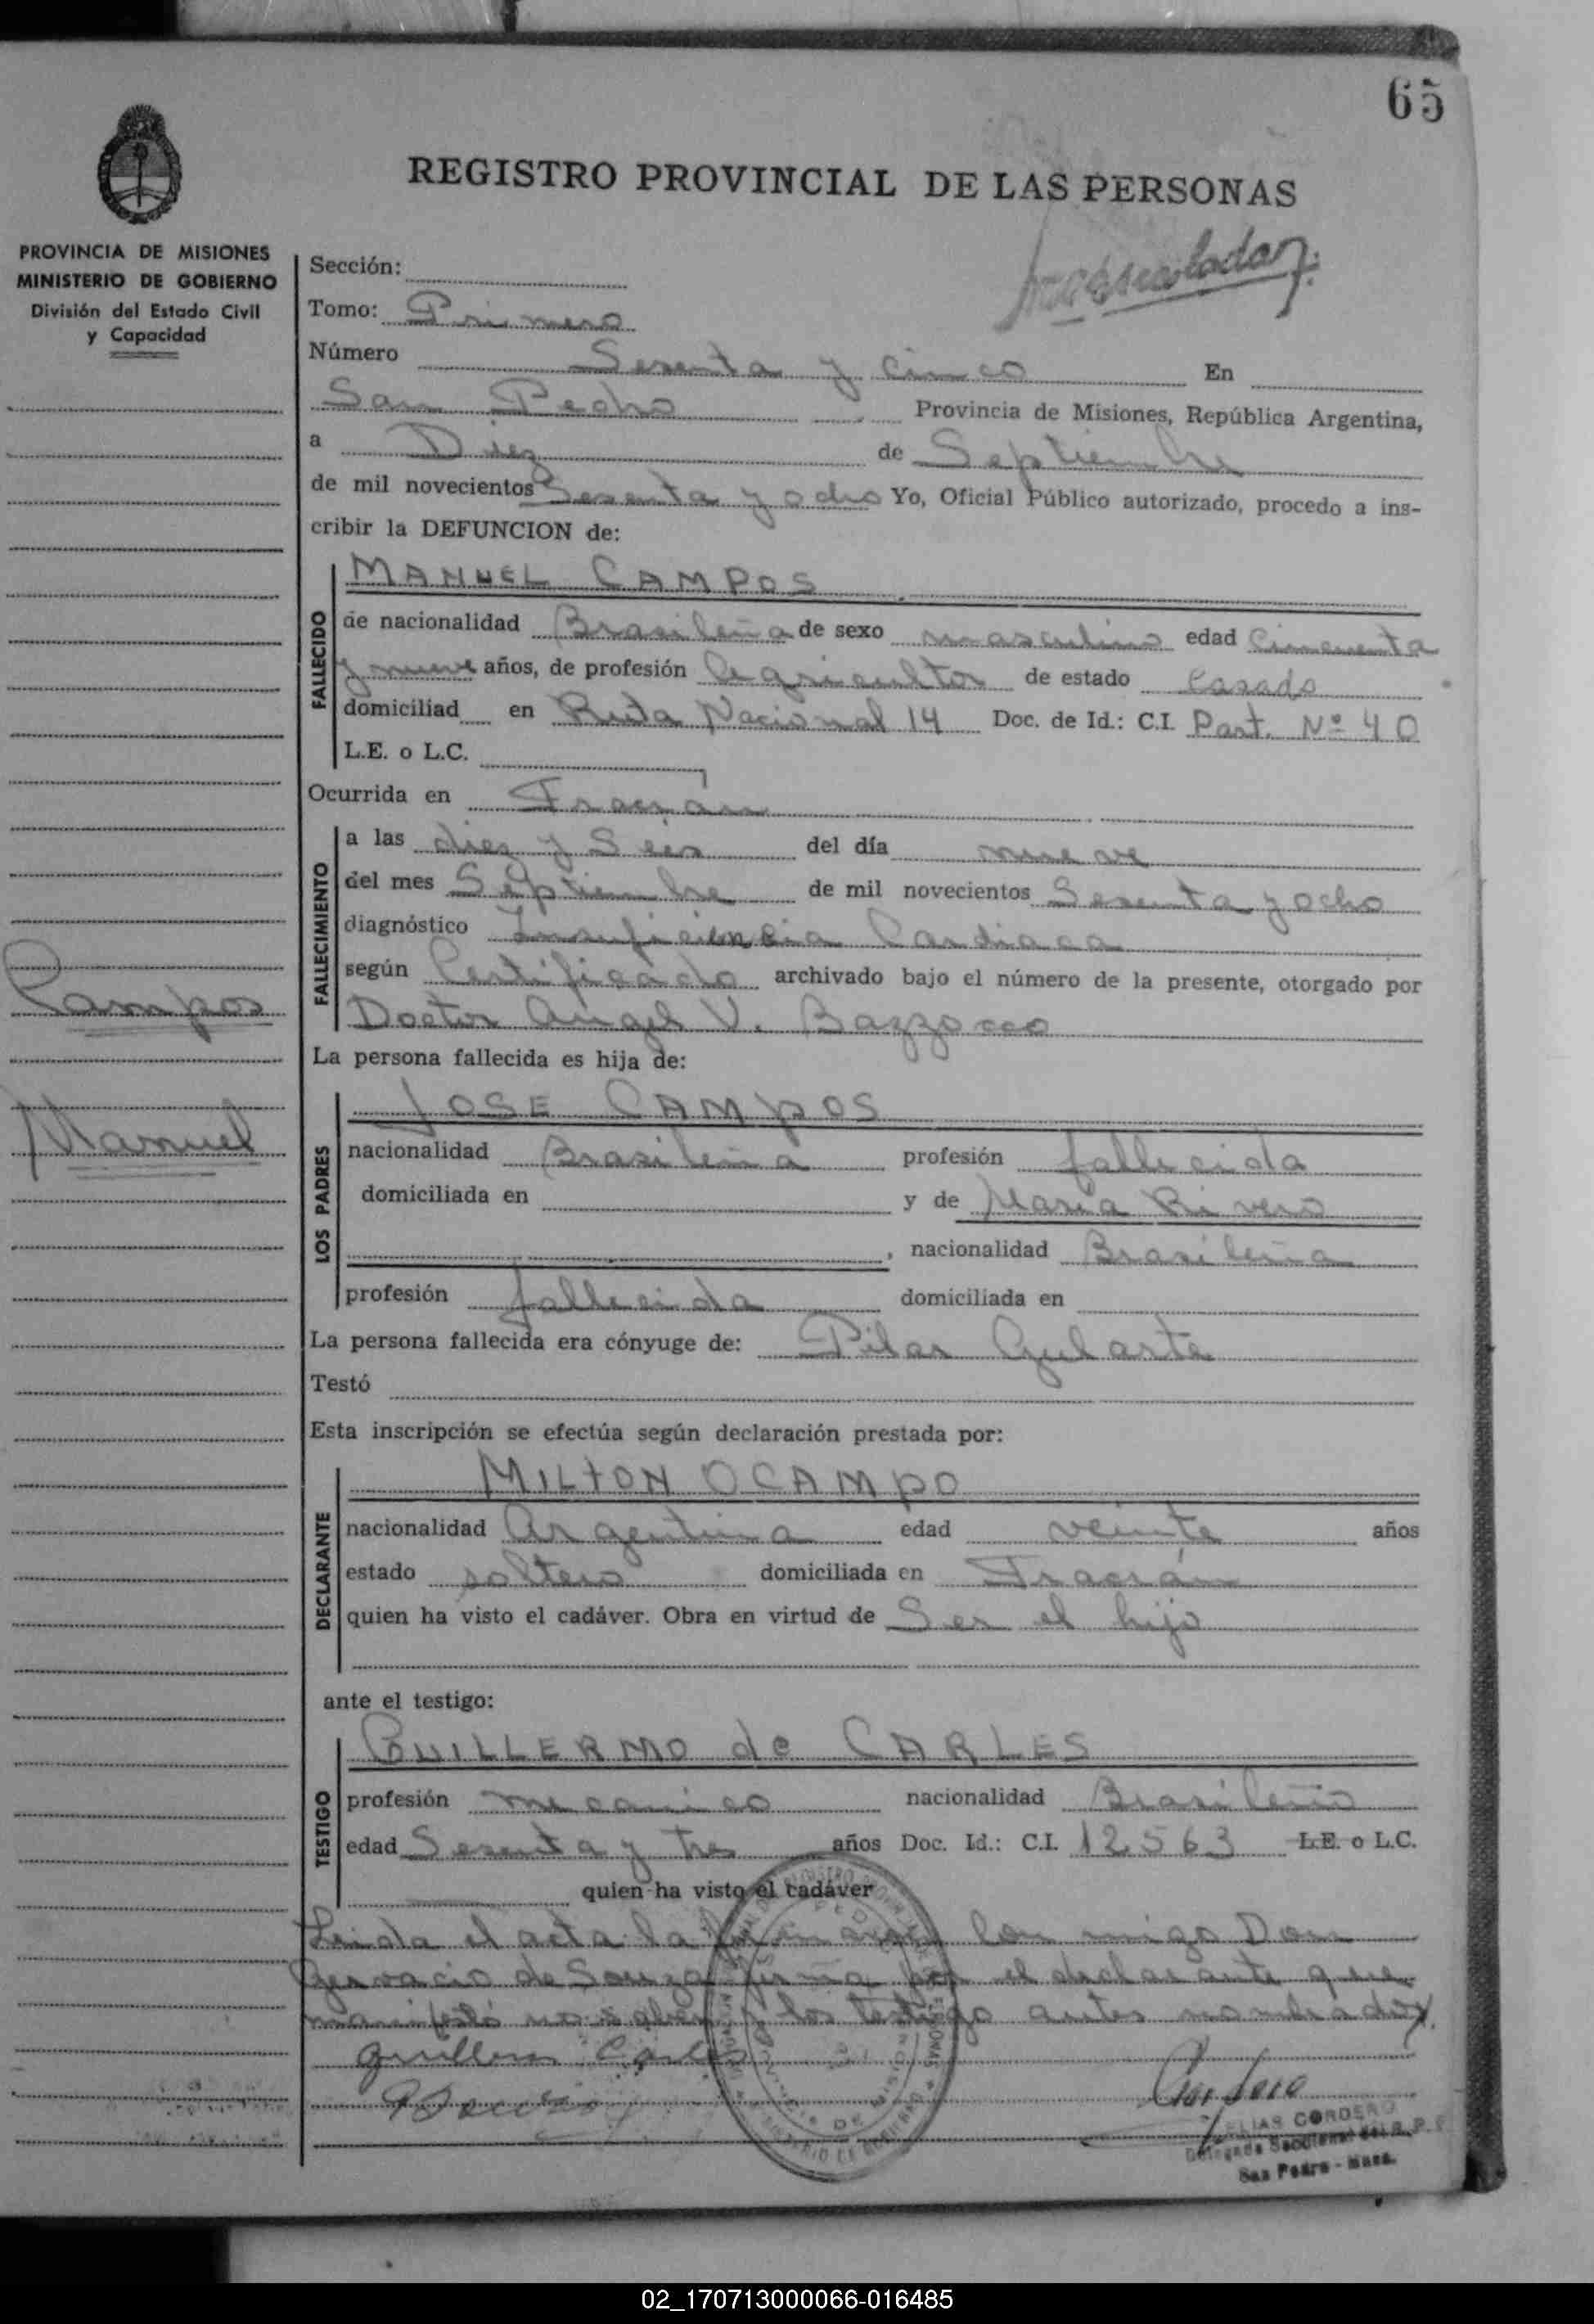 65
REGISTRO PROVINCIAL DE LAS PERSONAS
PROVINCIA DE MISIONES
MINISTERIO DE GOBIERNO
División del Estado Civil
y Capacidad
Campos
Manuel
Sección:
Tomo: Primero
Número Sesenta y cinco En
San Pedro Provincia de Misiones, República Argentina,
a Diez de Septiembre
de mil novecientos Sesenta y ocho Yo, Oficial Público autorizado, procedo a ins-
cribir la DEFUNCION de:
FALLECIDO
MANUEL CAMPOS
de nacionalidad Brasileña de sexo masculino edad Cincuenta
y nueve años, de profesión Agricultor de estado Casado
domiciliad en Ruta Nacional 14 Doc. de Id.: C.I. Part. Nº 40
L.E. o L.C.
Ocurrida en Fracrán
FALLECIMIENTO
a las diez y Seis del día nueve
del mes Septiembre de mil novecientos Sesenta y ocho
diagnóstico Insuficiencia Cardiaca
según Certificado archivado bajo el número de la presente, otorgado por
Doctor Angel V. Bazzocco
La persona fallecida es hija de:
LOS PADRES
JOSE CAMPOS
nacionalidad Brasileña profesión fallecida
domiciliada en y de Maria Rivero
, nacionalidad Brasileña
profesión fallecida domiciliada en
La persona fallecida era cónyuge de: Pilar Gularte
Testó
Esta inscripción se efectúa según declaración prestada por:
DECLARANTE
MILTON OCAMPO
nacionalidad Argentina edad veinte años
estado soltero domiciliada en Fracrán
quien ha visto el cadáver. Obra en virtud de Ser el hijo
ante el testigo:
TESTIGO
GUILLERMO de CARLES
profesión mecanico nacionalidad Brasileño
edad Sesenta y tres años Doc. Id.: C.I. 12563 L.E. o L.C.
quien ha visto el cadáver
Leida el acta la firman con migo Don
Gervacio de Souza firma por el declarante que
manifestó no saber y los testigo antes nombrados.
Guillermo Carles
ELIAS CORDERO
Delegado Seccional del R. P. P.
San Pedro - Mnes.
02_170713000066-016485